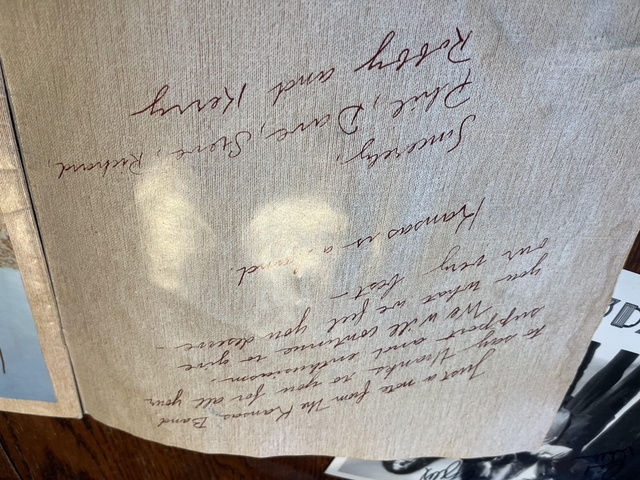 Just a note from The Kansas Band
to say thanks to you for all your
support and enthusiasm.
We will continue to give
you what we feel you deserve –
our very best –
Kansas is a
Sincerely,
Phil, Dave, Steve, Richard,
Robby and Kerry